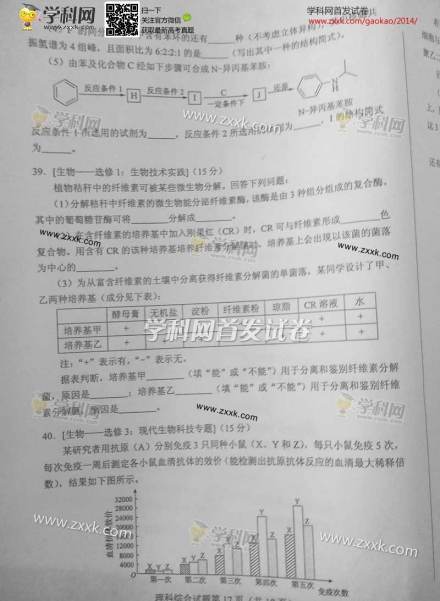 学科网
WWW.ZXXK.COM
扫一扫
关注官方微信
获取最新高考真题
最新高考试卷
www.zxxk.com/gaokao/2014/
振氢谱为4组峰，且面积比为6:2:2:1的是（写出其中一种的结构简式）。
（5）由苯及化合物C经如下步骤可合成N-异丙基苯胺：
反应条件1 H 反应条件2 I C 一定条件下 J 还原
N-异丙基苯胺
反应条件1所选用的试剂为，反应条件2所选用的试剂为，I的结构简式
为。
39. [生物——选修1：生物技术实践]（15分）
植物秸秆中的纤维素可被某些微生物分解。回答下列问题：
（1）分解秸秆中纤维素的微生物能分泌纤维素酶，该酶是由3种组分组成的复合酶，
其中的葡萄糖苷酶可将分解成。
在含纤维素的培养基中加入刚果红（CR）时，CR可与纤维素形成色
复合物。用含有CR的该种培养基培养纤维素分解菌时，培养基上会出现以该菌的菌落
为中心的。
（3）为从富含纤维素的土壤中分离获得纤维素分解菌的单菌落，某同学设计了甲、
乙两种培养基（成分见下表）：
酵母膏 无机盐 淀粉 纤维素粉 琼脂 CR溶液 水
培养基甲 + +
培养基乙 + +
学科网首发试卷
注：“+”表示有，“-”表示无。
据表判断，培养基甲（填“能”或“不能”）用于分离和鉴别纤维素分解
菌，原因是；培养基乙（填“能”或“不能”）用于分离和鉴别纤维
素分解菌，原因是。
40. [生物——选修3：现代生物科技专题]（15分）
某研究者用抗原（A）分别免疫3只同种小鼠（X、Y和Z），每只小鼠免疫5次，
每次免疫一周后测定各小鼠血清抗体的效价（能检测出抗原抗体反应的血清最大稀释倍
数），结果如下图所示。
32000
28000
24000
20000
16000
12000
8000
4000
X Y Z
第一次 第二次 第三次 第四次 第五次 免疫次数
理科综合试题第12页
www.zxxk.com